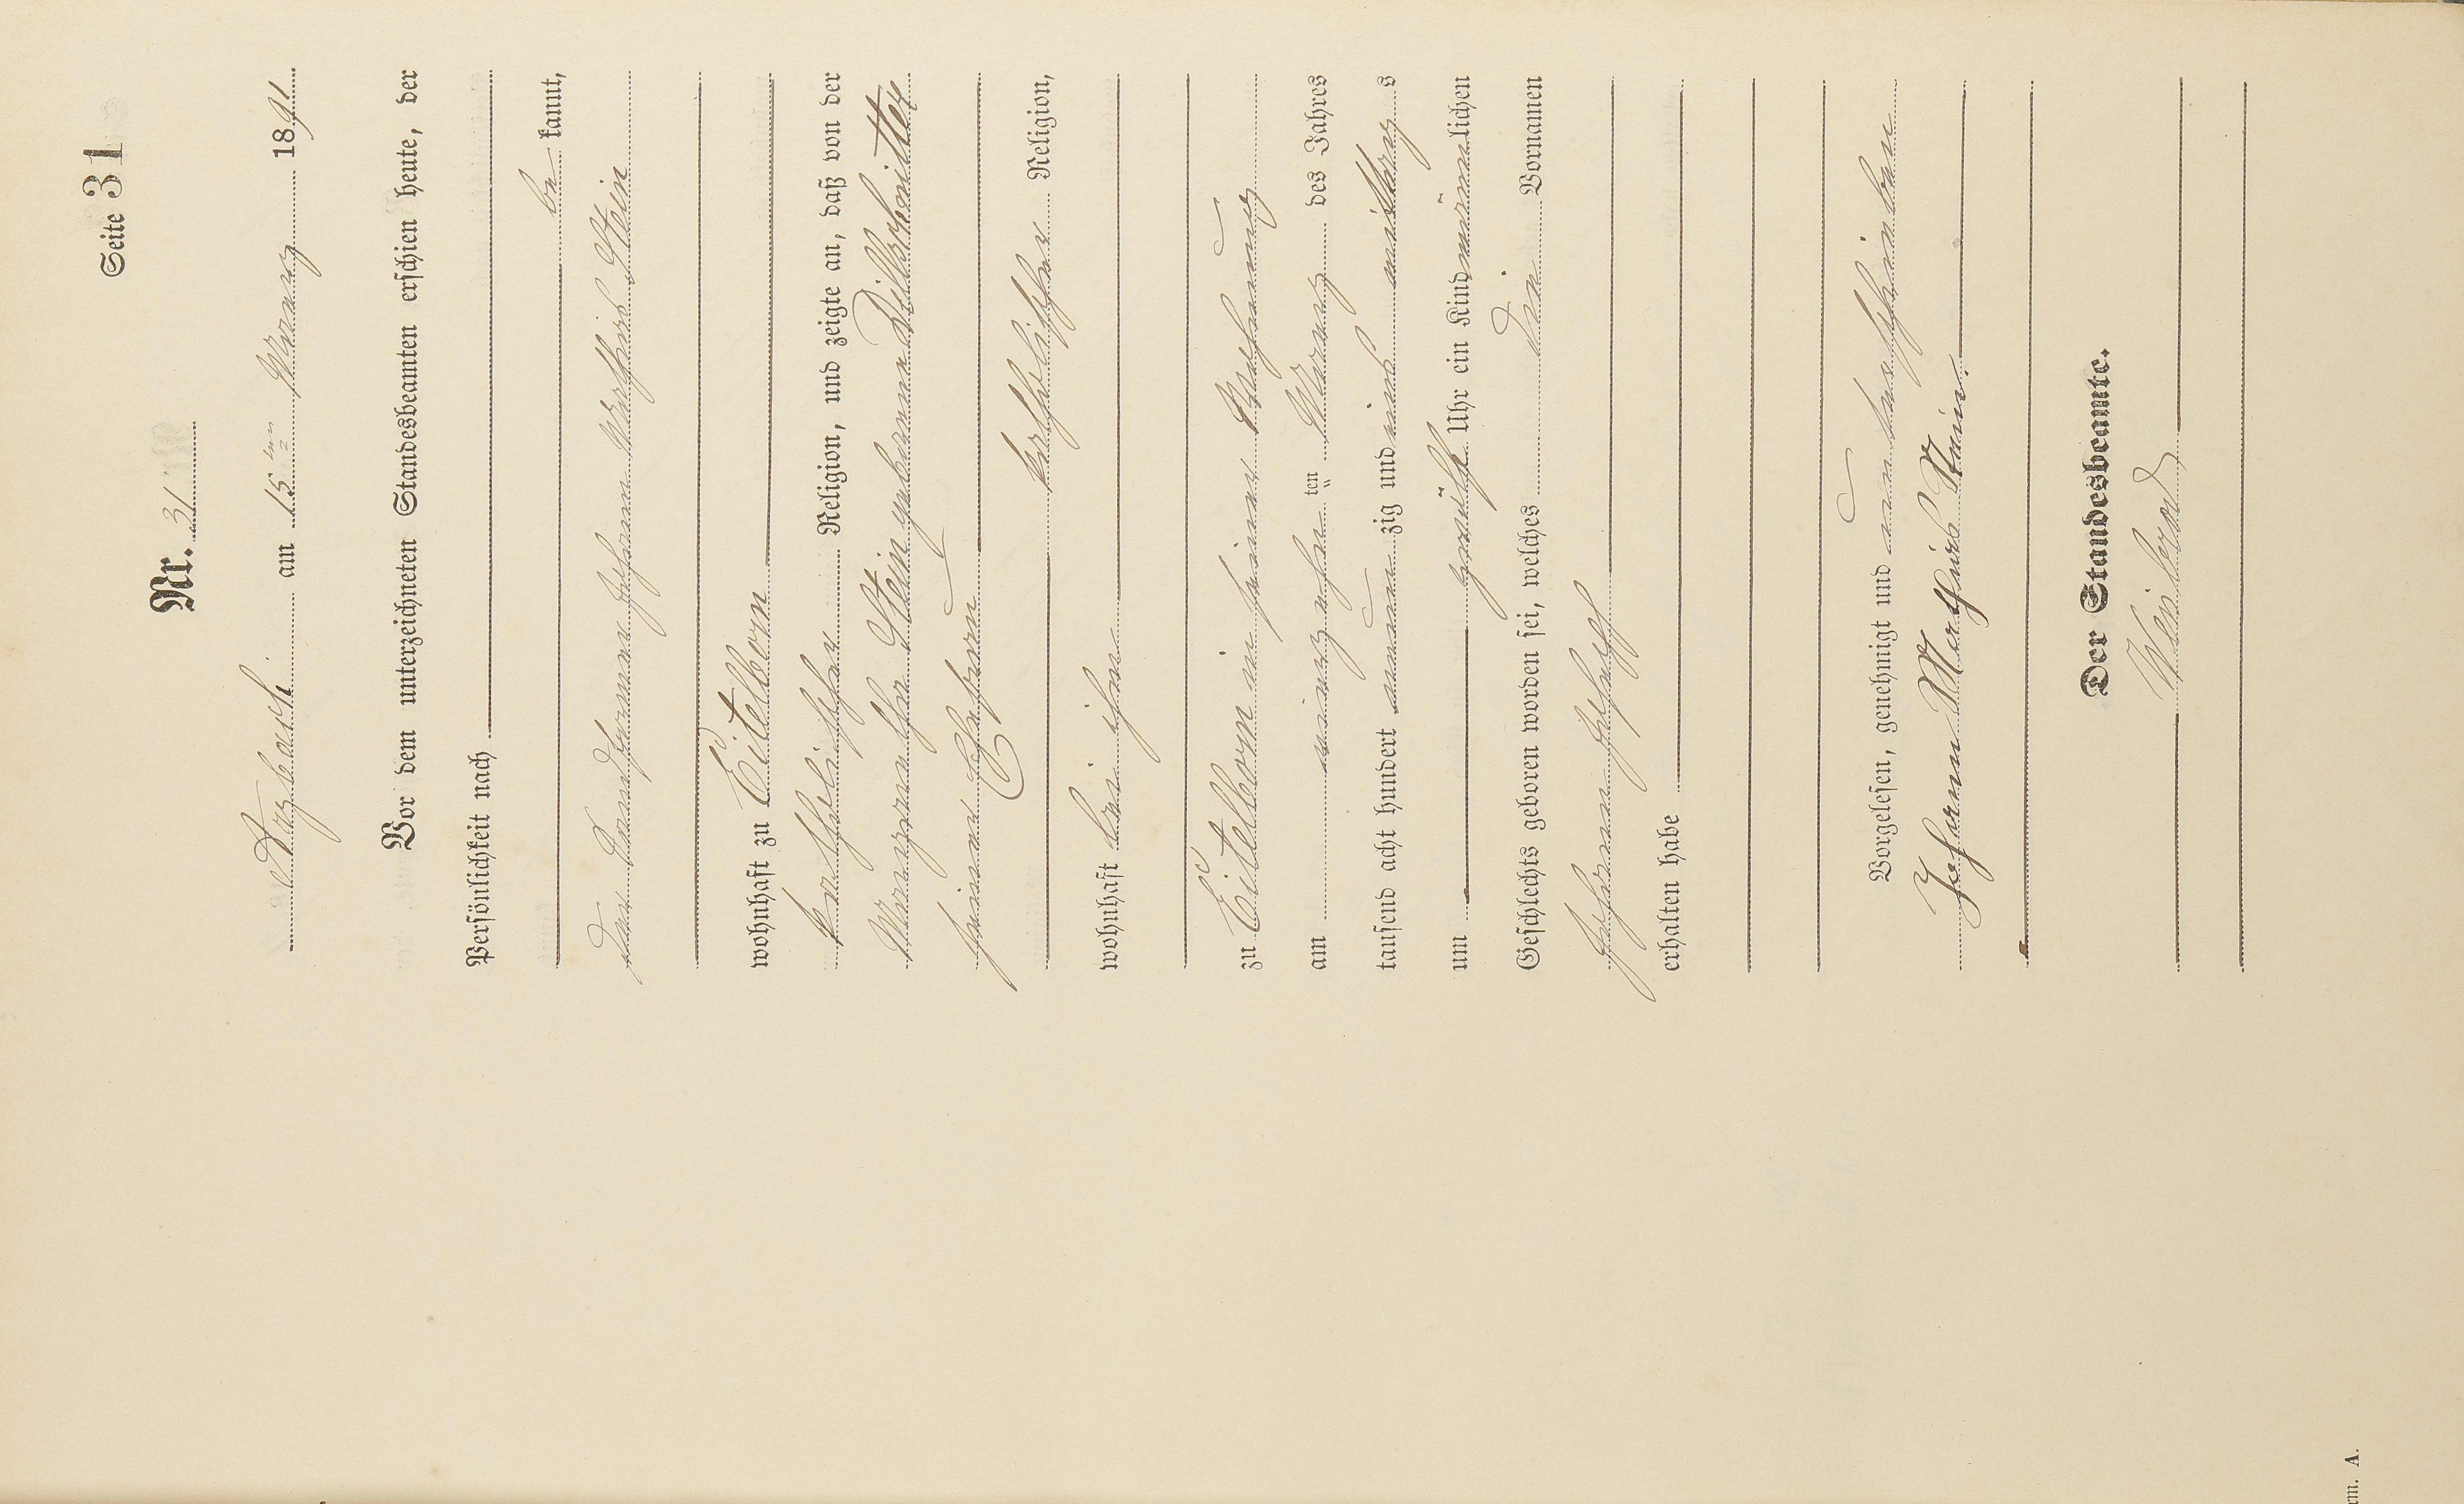 Seite 31
Nr. 31
Arzbach am 15ten Maerz 1891
Vor dem unterzeichneten Standesbeamten erschien heute, der
Persönlichkeit nach
be kannt,
der Johann Mathias Stein
wohnhaft zu Eitelborn
katholischer Religion, und zeigte an, daß von der
Stein geborene
seiner Ehefrau
katholischer Religion,
wohnhaft bei ihm
zu Eitelborn in seiner Wohnung
am ten Maerz des Jahres
tausend acht hundert neun zig und eins mittag s
um zwölf Uhr ein Kind männlichen
Geschlechts geboren worden sei, welches die Vornamen
Johann Joseph
erhalten habe
Vorgelesen, genehmigt und von unterschrieben
Johann Mathias Stein.
Der Standesbeamte.
Weisbrod
rm. A.